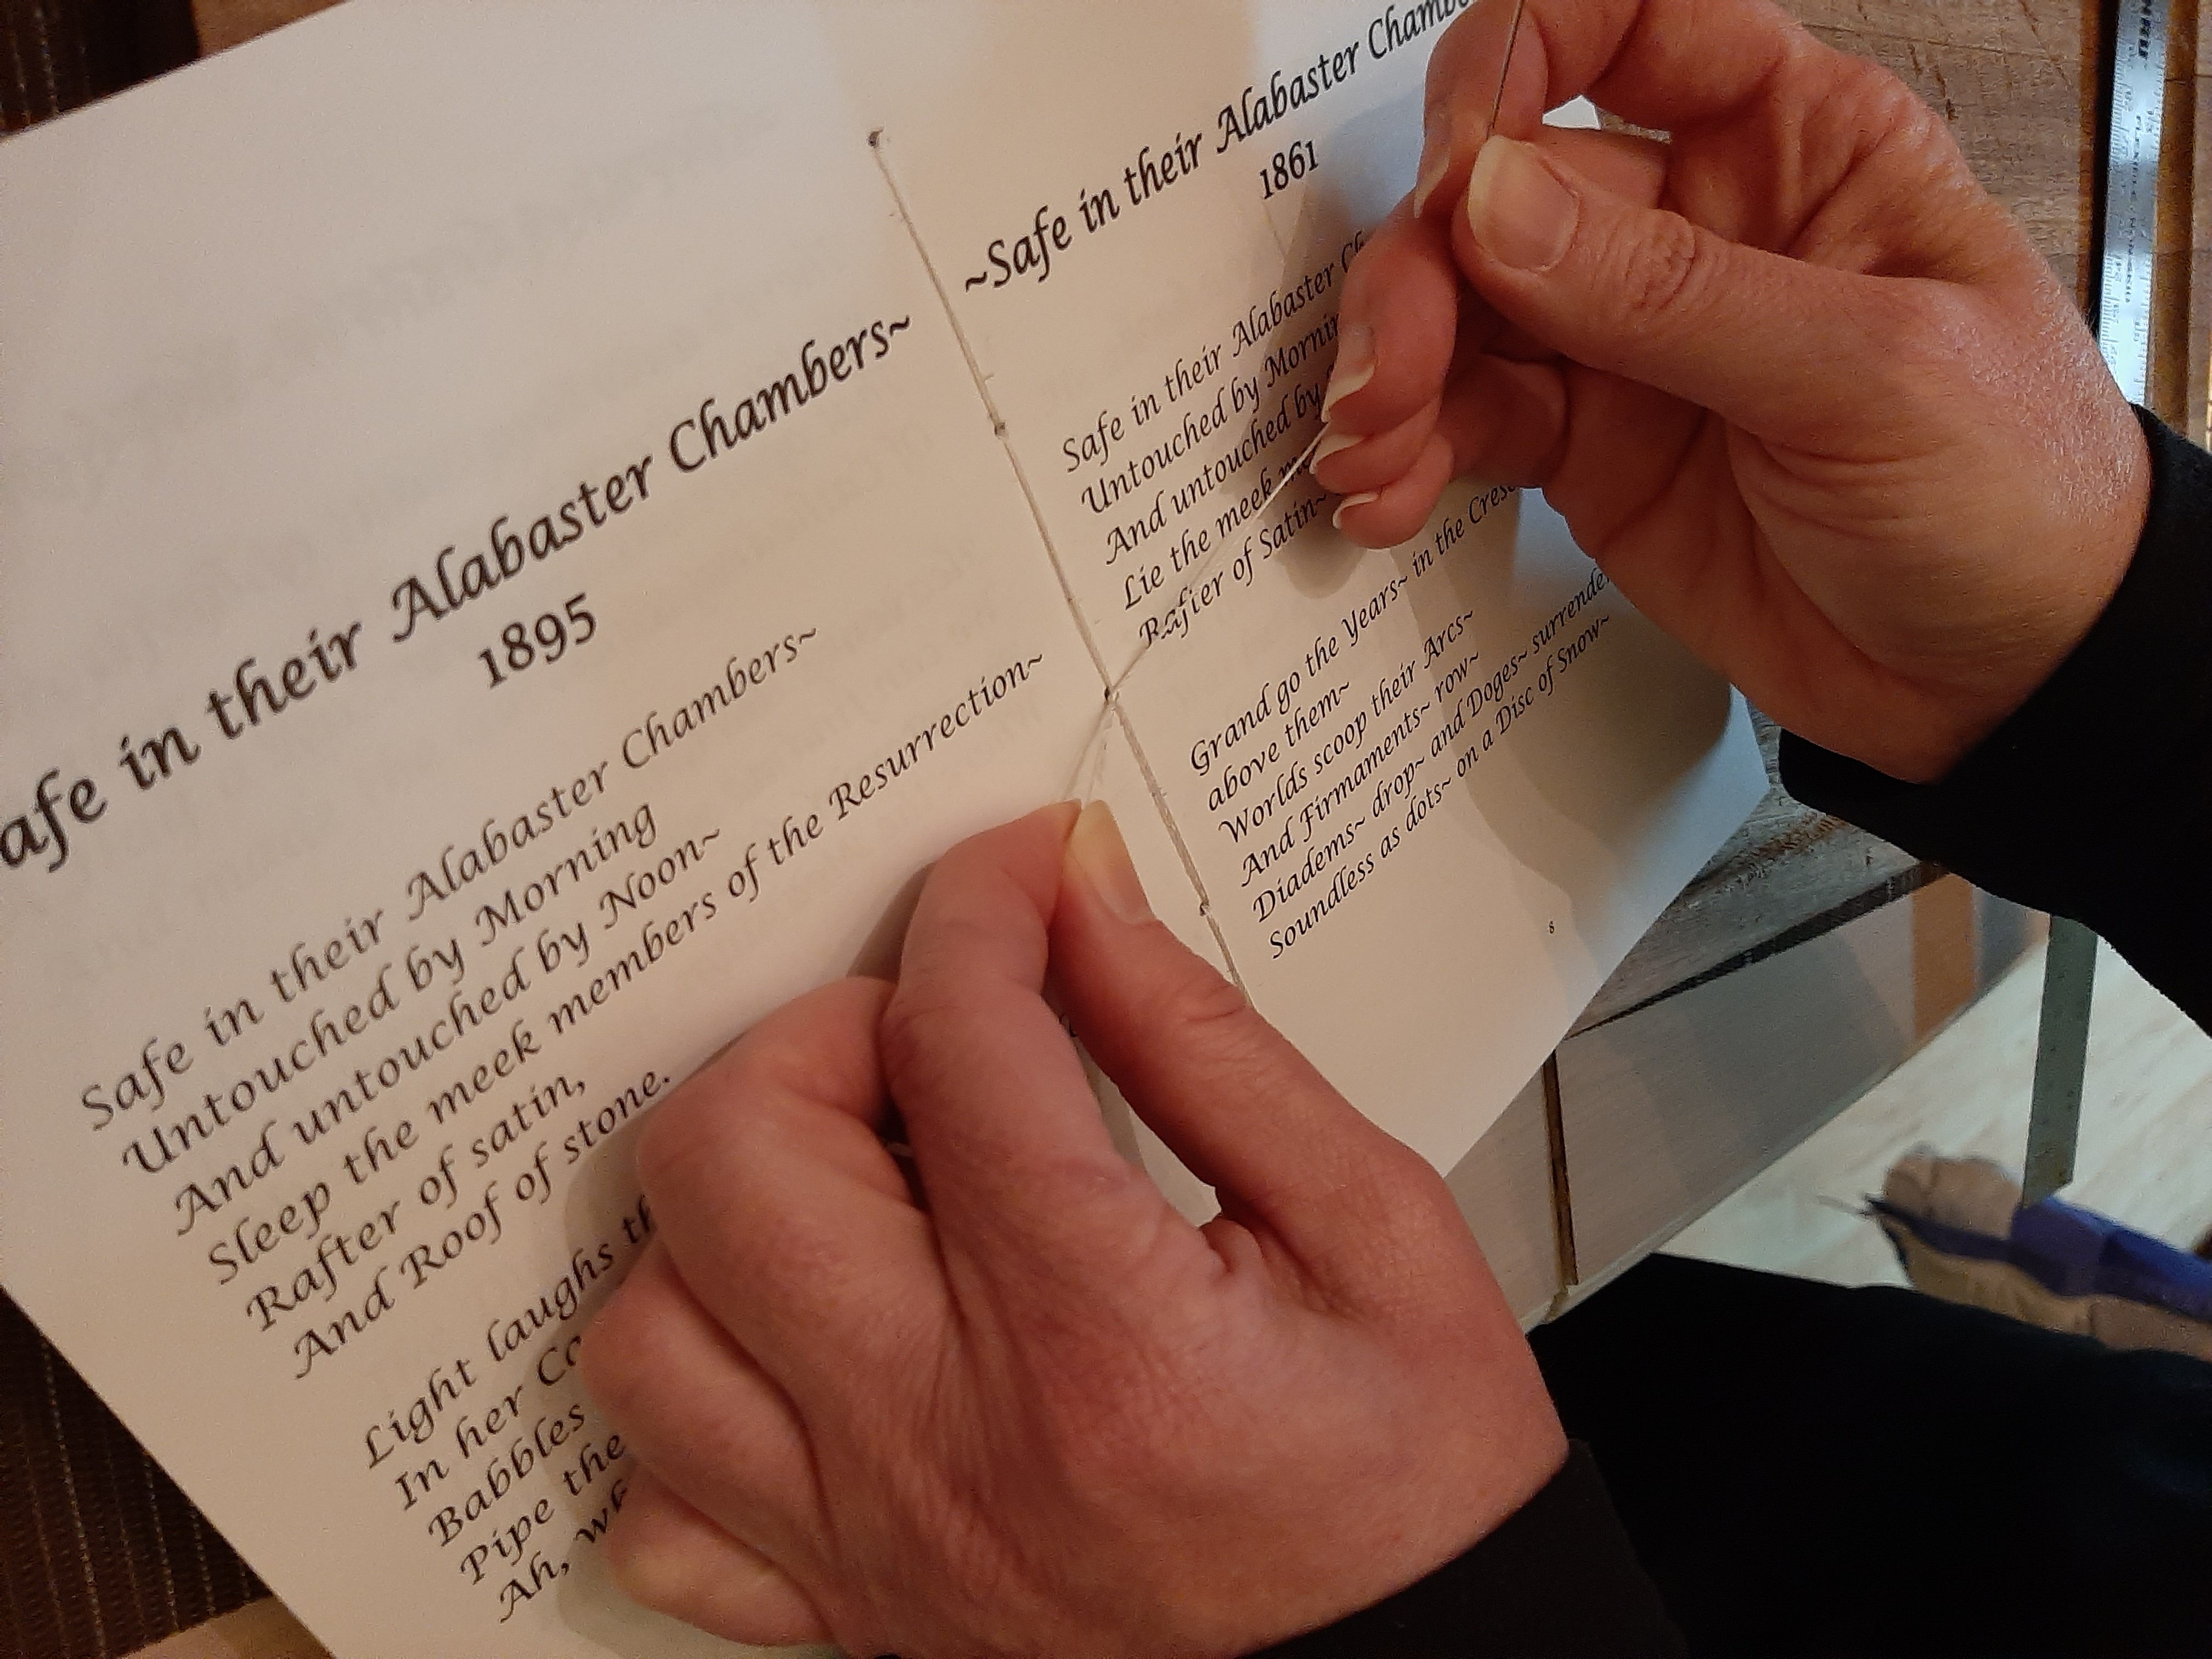 afe in their Alabaster Chambers~
1895
Safe in their Alabaster Chambers~
Untouched by Morning
And untouched by Noon~
Sleep the meek members of the Resurrection~
Rafter of satin,
And Roof of stone.
Light laughs th
In her Co
Babbles
Pipe the
Ah, wh
~Safe in their Alabaster Chambe
1861
Safe in their Alabaster Ch
Untouched by Mornin
And untouched by
Lie the meek me
Rafter of Satin~
Grand go the Years~ in the Cresc
above them~
Worlds scoop their Arcs~
And Firmaments~ row~
Diadems~ drop~ and Doges~ surrender
Soundless as dots~ on a Disc of Snow~
8